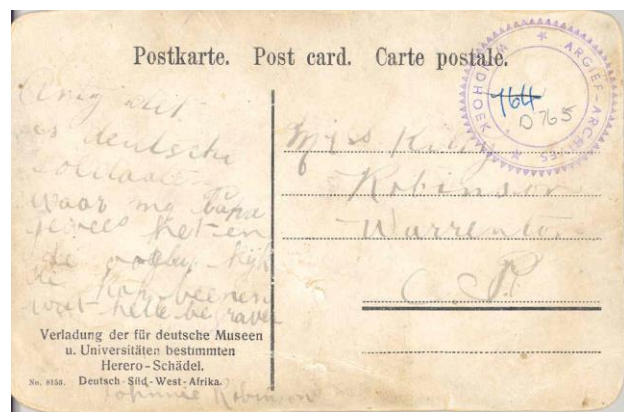 Postkarte. Post card. Carte postale.
WINDHOEK * ARGIEF-ARCHIVES *
164
D765
dit
is deutsche
waar my papa
gewees het en
de kyk
de kopbeenen
wat hulle be
Miss Kitty
Robinson
Warrenton
C.P.
Verladung der für deutsche Museen
u. Universitäten bestimmten
Herero-Schädel.
No. 8153. Deutsch-Süd-West-Afrika.
Johnnie Robinson